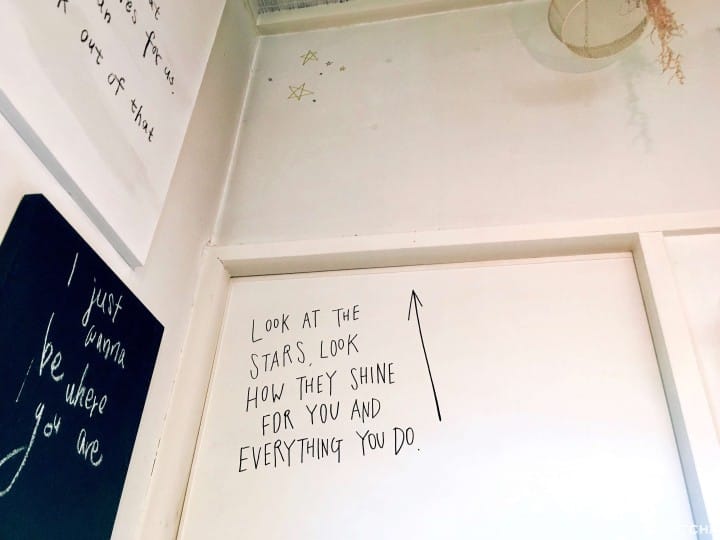 es for us.
out of that
I just
wanna
be where
you are
LOOK AT THE
STARS, LOOK
HOW THEY SHINE
FOR YOU AND
EVERYTHING YOU DO.